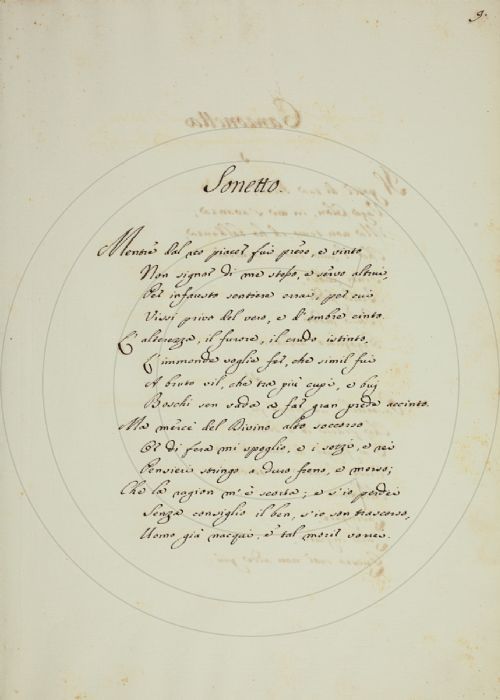 9.
Sonetto.
Mentre dal reo piacer fui preso, e vinto
Non signor di me stesso, e servo altrui,
Per infausto sentiere errai, per cui
Vissi privo del vero, e d'ombre cinto.
L'alterezza, il furore, il crudo istinto,
L'immonde voglie fer, che simil fui
A bruto vil, che tra più cupi, e bui
Boschi sen vada a far gran preda accinto.
Ma mercè del Divino alto soccorso
Or di fera mi spoglio, e i sozzi, e rei
Pensieri stringo a duro freno, e morso;
Che la ragion m'è scorta; e s'io perdei
Senza consiglio il ben, s'io son trascorso,
Uomo già nacqui, e tal morir vorrei.